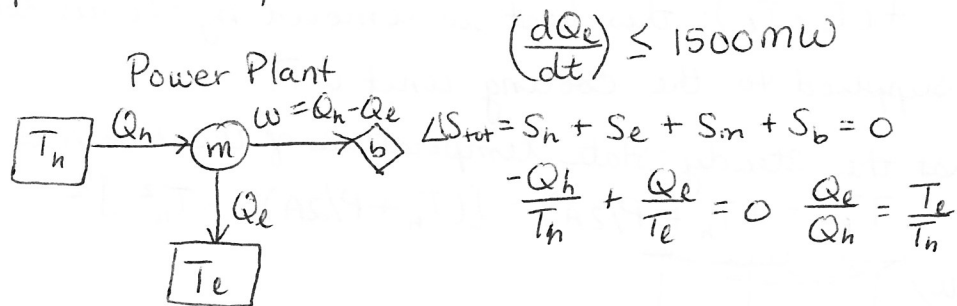 (dQe/dt) ≤ 1500mW
Power Plant
Th Qh m w = Qh-Qe b ΔStot = Sh + Se + Sm + Sb = 0
-Qh/Th + Qe/Te = 0 Qe/Qh = Te/Th
Qe
Te